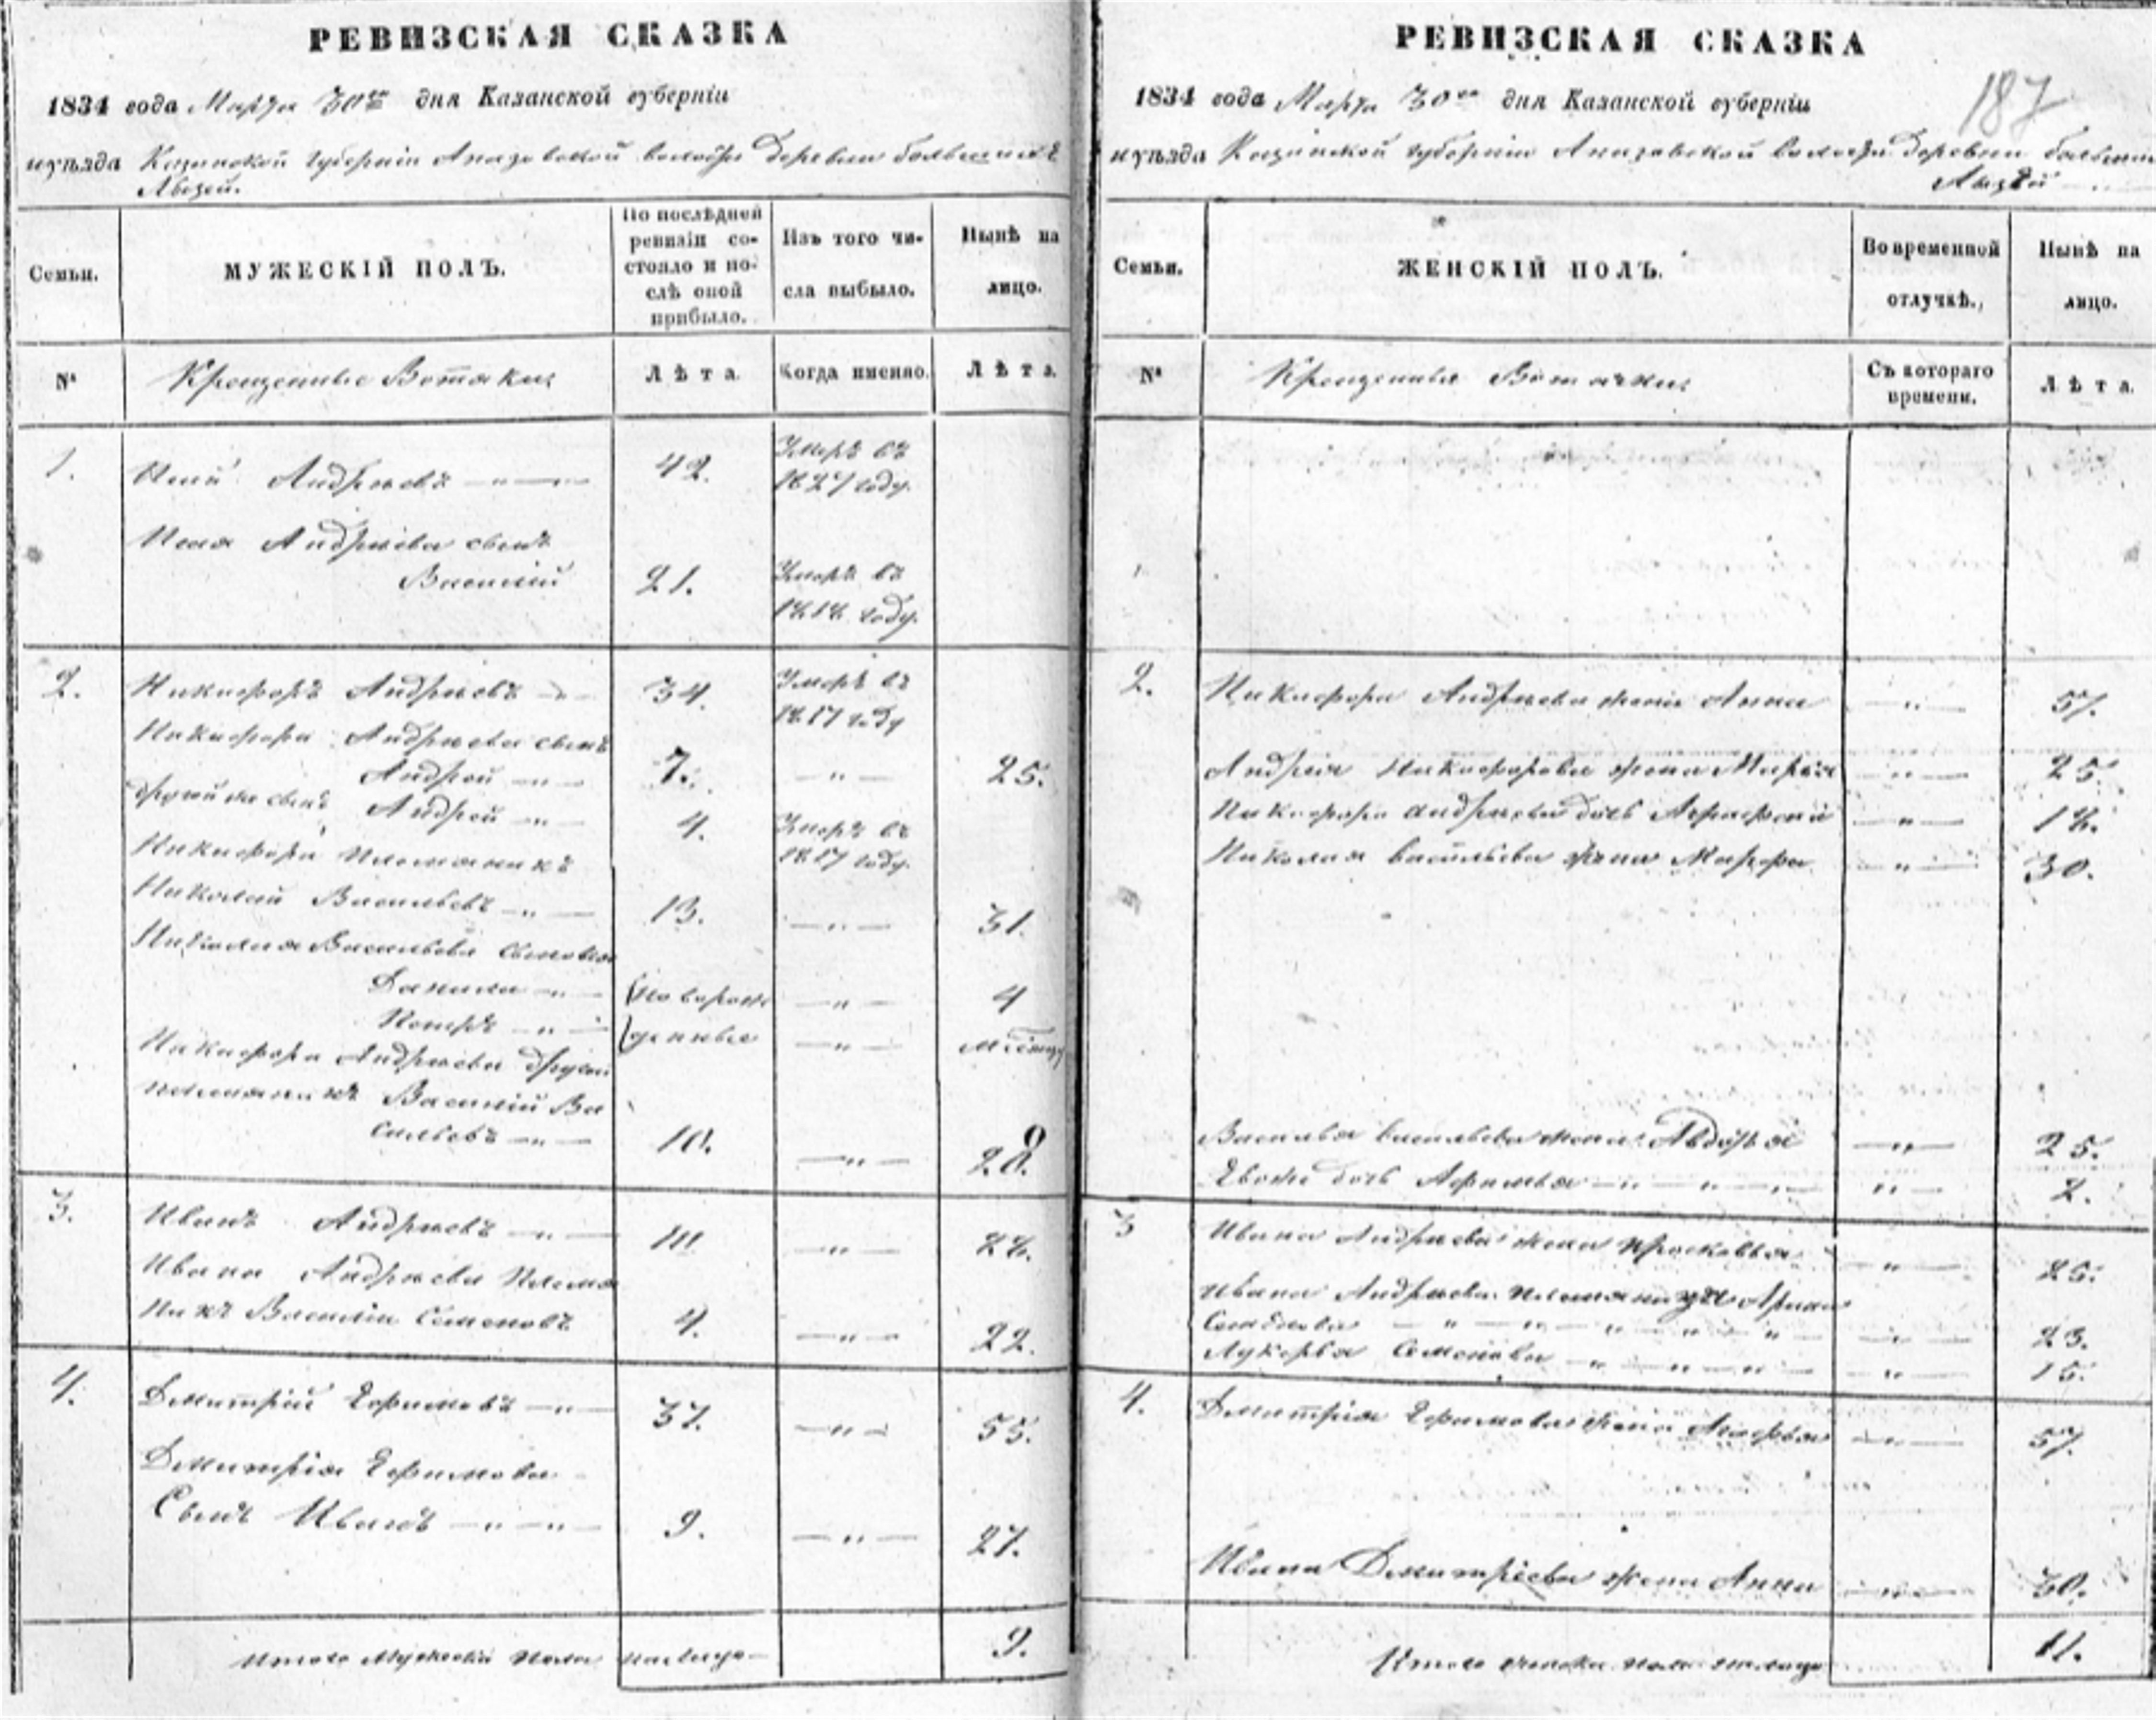 РЕВИЗСКАЯ СКАЗКА
1834 года Марта 30го дня Казанской губерніи
и уѣзда Казанской губерніи волости деревни большихъ
РЕВИЗСКАЯ СКАЗКА
187
1834 года Марта 30го дня Казанской губерніи
и уѣзда Казанской губерніи волости деревни
Семьи.
МУЖЕСКІЙ ПОЛЪ.
По послѣдней ревизіи состояло и послѣ оной прибыло.
Изъ того числа выбыло.
Нынѣ на лицо.
№
Крещеные Вотяки
Лѣта.
Когда именно.
Лѣта.
1. Андреевъ 42. Умеръ въ
1827 году.
Андреева сынъ
Василій 21. Умеръ въ
1818 году.
2. Никифоръ Андреевъ 34. Умеръ въ
1817 году
Никифора Андреева сынъ
Андрей 7. 25.
Андрей 4. Умеръ въ
1817 году.
Никифора племяникъ
Николай Васильевъ 13. 31.
Николая Васильева сыновья
Данила новорож 4
Петръ денные
Никифора Андреева другой
племяникъ Василій Ва
сильевъ 10. 28.
3. Иванъ Андреевъ 10 28.
Ивана Андреева племя
никъ Василій Семеновъ 4. 22.
4. Дмитрій Ефимовъ 37. 55.
Дмитрія Ефимова
Сынъ Иванъ 9. 27.
Итого Мужеска пола на лицо 9.
Семьи.
ЖЕНСКІЙ ПОЛЪ.
Во временной отлучкѣ.
Нынѣ на лицо.
№
Крещеныя Вотячки
Съ котораго времени.
Лѣта.
2. Никифора Андреева жена Анна 57.
Андрея Никифорова жена Марья 25.
Никифора Андреева дочь 18.
Николая Васильева жена 30.
Василья Васильева жена Авдотья 25.
Евоже дочь Афимья 2.
3 Ивана Андреева жена Прасковья 25.
Ивана Андреева племяницы Арина
Семенова 23.
Лукерья Семенова 15.
4. Дмитрія Ефимова жена Марфа 57.
Ивана Дмитріева жена Анна 30.
Итого женска пола на лицо 11.